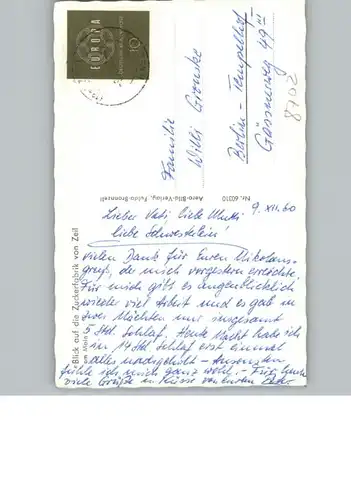 EUROPA
10
Familie
Willi Gromke
Berlin - Tempelhof
Gössmweg 49 III
8702
Aero-Bild-Verlag, Fulda-Bronnzell
Nr. 60310
Blick auf die Zuckerfabrik von Zeil
9. XII. 60
Lieber Vati, liebe Mutti
liebe Schwesterlein!
vielen Dank für Euren Nikolaus-
gruß, der mich vorgestern erreichte.
Für mich gibt es augenblicklich
wieder viel Arbeit und es gab in
zwei Nächten nur insgesamt
5 Std. Schlaf. Heute Nacht habe ich
in 14 Std Schlaf erst einmal
alles nachgeholt – Ansonsten
fühle ich mich ganz wohl. – Für heute
viele Grüße u. Küsse von eurem